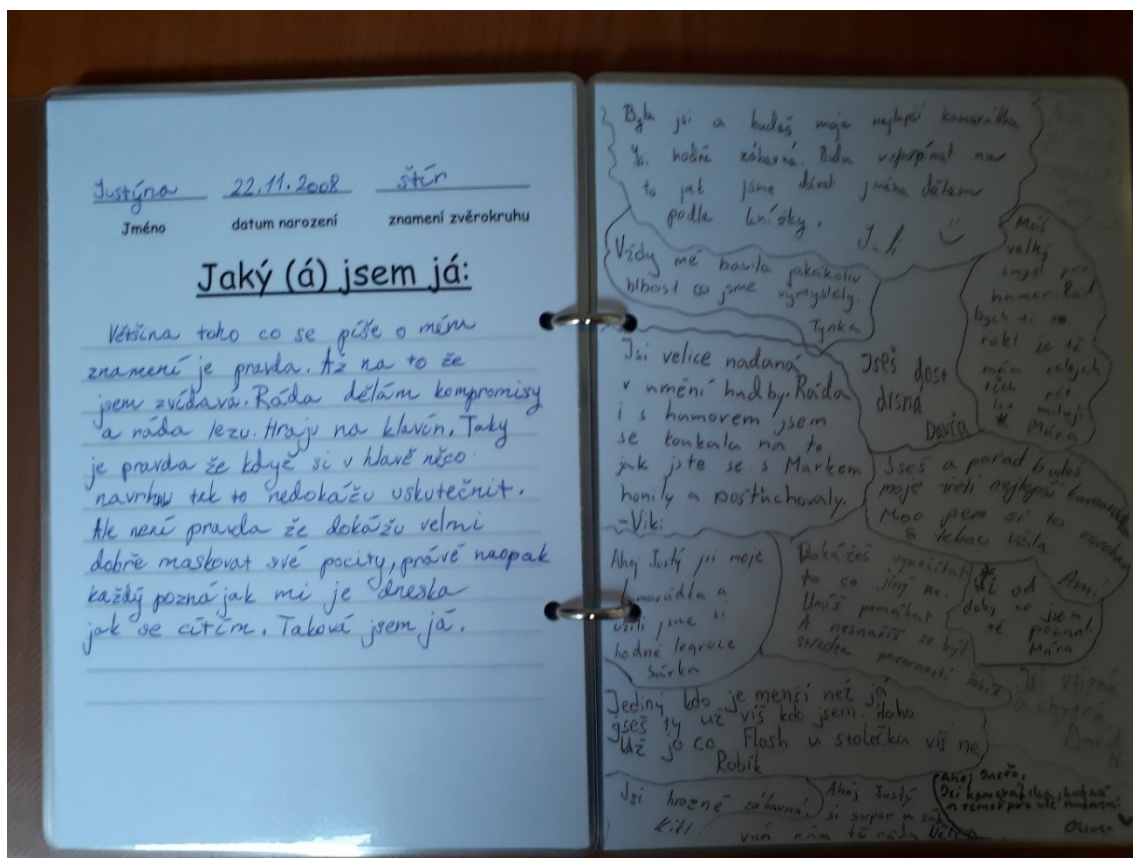 Justýna 22.11.2008 štír
Jméno datum narození znamení zvěrokruhu
Jaký (á) jsem já:
Většina toho co se píše o mém
znamení je pravda. Až na to že
jsem zvídavá. Ráda dělám kompromisy
a ráda lezu. Hraju na klavír. Taky
je pravda že když si v hlavě něco
navrhnu tak to nedokážu uskutečnit.
Ale není pravda že dokážu velmi
dobře maskovat své pocity, právě naopak
každý pozná jak mi je dneska
jak se cítím. Taková jsem já.
Byla jsi a budeš moje nejlepší kamarádka
Jsi hodně zábavná. Budu vzpomínat na
to jak jsme dávali jména dětem
podle knížky.
Vždy mě bavila jakákoliv
blbost co jsme vymyslely.
Týnka
Máš
velký
smysl pro
humor. Rád
bych ti to
řekl že tě
mám celých
těch pět
let miluji
* Mára
Jsi velice nadaná
v umění hudby. Ráda
i s humorem jsem
se koukala na to
jak jste se s Markem
honily a postuchovaly.
-Viki
Jseš dost
drsná
Davča
Jseš a pořád budeš
moje třetí nejlepší kamarádka
Moc jsem si to
s tebou
Ami
Ahoj Justý jsi moje
kamarádka a
užili jsme si
hodně legrace
Sárka
Dokážeš vypočítat
to co jiný ne.
Umíš pomáhat
A nesnášíš se být
středem pozornosti
* Už od
doby co
jsem
tě poznal
Mára
Jsi vtipná
a chytrá
Jediný kdo je menší než já
jseš ty už víš kdo jsem. Haha
Už jo co Flash u stolečku víš ne
Robík
Jsi hrozně zábavná.
Kiki
Ahoj Justý
si super a zába
vná mám tě ráda
Ahoj
Jsi kamarádska, hodná
a téměř pro vše nadšená